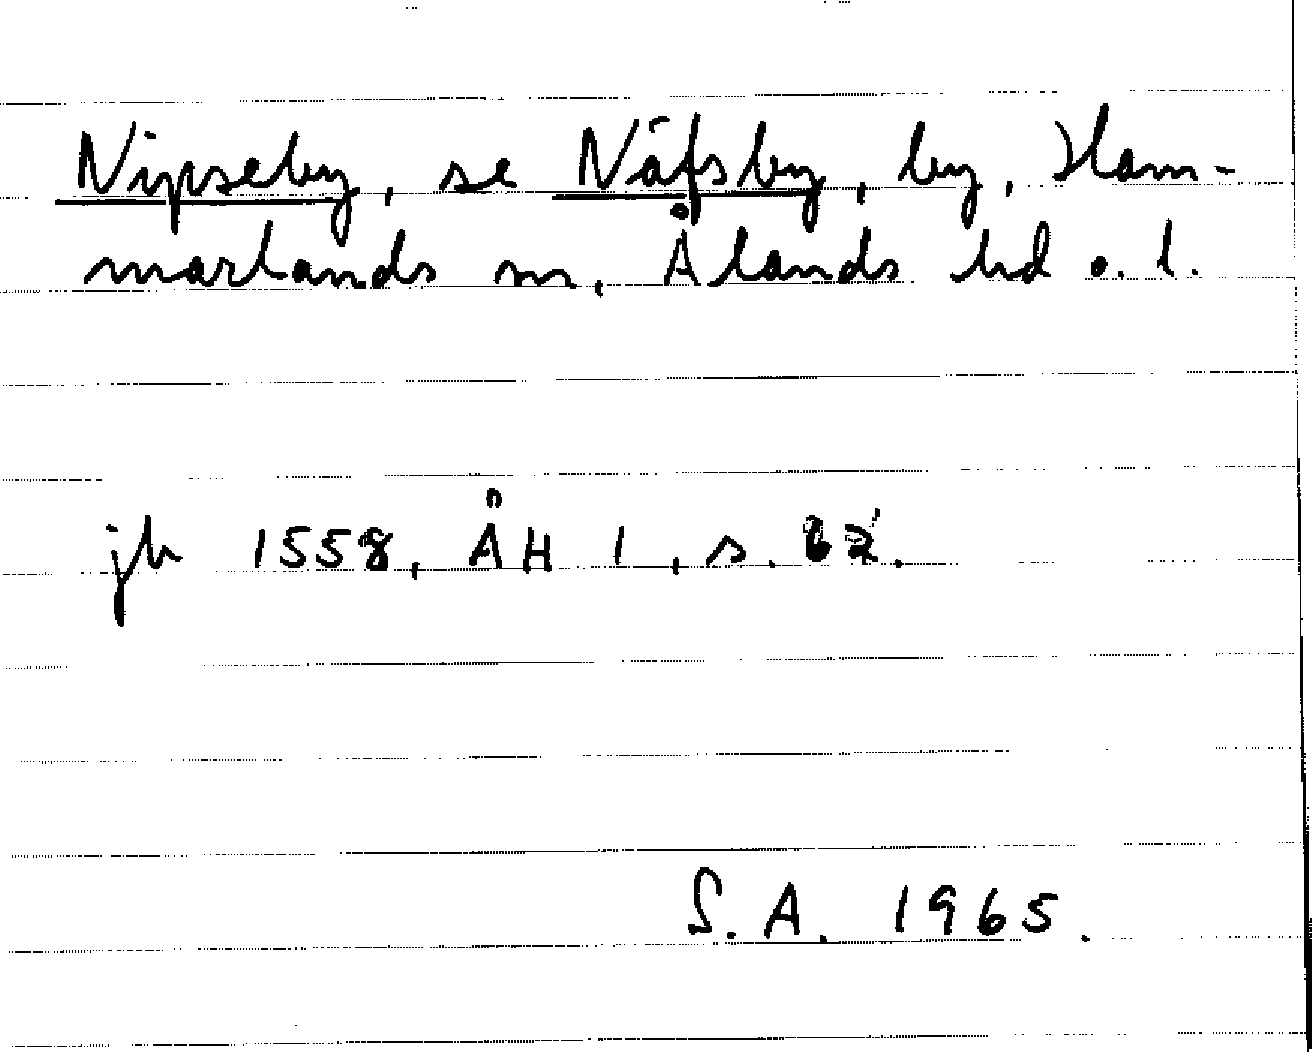 Nipseby, se Näfsby, by, Ham-
marlands sn, Ålands hd o. l.
jb 1558, ÅH 1, s. 62.
S.A. 1965.